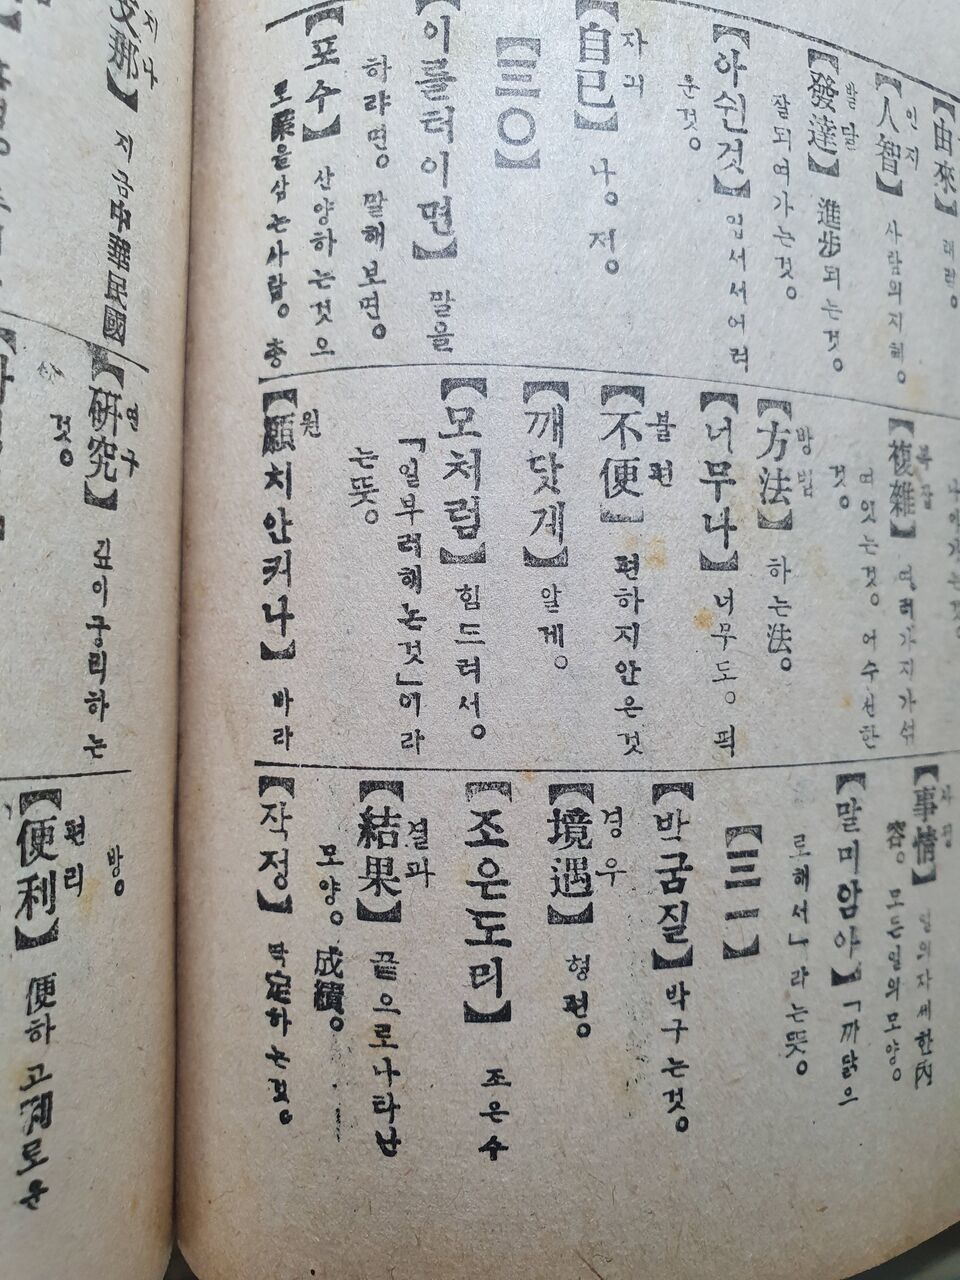 【由來】 래력。
인지
【人智】 사람의지혜。
발달
【發達】 進步되는것。
잘되여가는것。
【아쉰것】 업서서어려
운것。
자긔
【自己】 나。저。
【三〇】
【이를터이면】 말을
하랴면。말해보면。
【포수】 산양하는것으
로業을삼는사람。총
복잡
【複雜】 여러가지가섞
여잇는것。어수선한
것。
방법
【方法】 하는法。
【너무나】 너무도。퍽
불편
【不便】 편하지안은것
【깨닷게】 알게。
【모처럼】 힘드려서。
「일부러해는것」이라
는뜻。
원
【願치안키나】 바라
사정
【事情】 일의자세한內
容。모든일의모양。
【말미암아】「까닭으
로해서」라는뜻。
【三一】
【박굼질】 박구는것。
경우
【境遇】 형편。
【조은도리】 조은수
결과
【結果】 끝으로나타난
모양。成績。
【작정】 작定하는것。
지나
【支那】 지금中華民國
연구
【硏究】 깊이궁리하는
것。
방。
편리
【便利】 便하고利로운